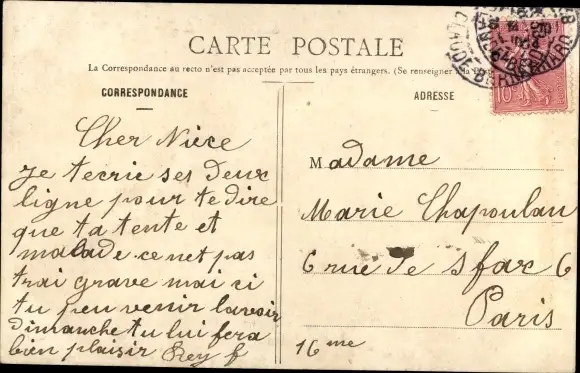 CARTE POSTALE
La Correspondance au recto n'est pas acceptée par tous les pays étrangers. (Se renseigner
CORRESPONDANCE
Cher Nièce
Je tecrie ses Deux
ligne pour te dire
que ta tente et
malade ce net pas
trai grave mai si
tu peu venir lavoir
Dimanche tu lui fera
bien plaisir Rey f
ADRESSE
Madame
Marie Chapoulau
6 rue de Sfax 6
Paris
16me
RUE CLAUDE BERNARD
10c